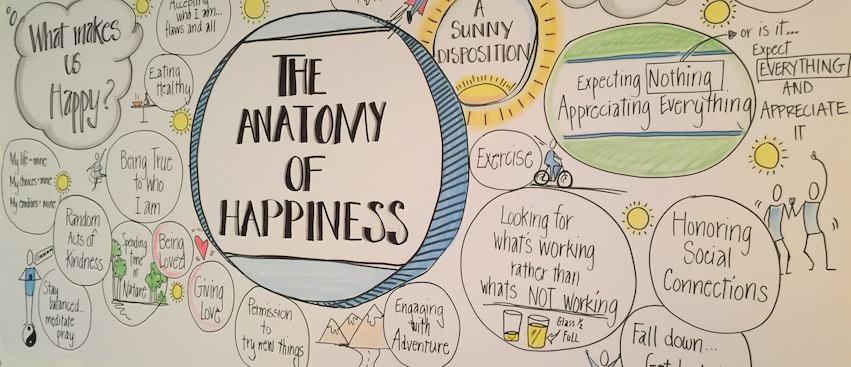 What makes
us
Happy?
Accepting
who I am...
flaws and all
Eating
Healthy
THE
ANATOMY
OF
HAPPINESS
A
SUNNY
DISPOSITION
Expecting Nothing
Appreciating Everything
or is it...
Expect
EVERYTHING
AND
APPRECIATE
IT
My life = mine
My choices = mine
My emotions = mine
Being True
to who
I am
Exercise
Random
Acts of
Kindness
Spending
time in
Nature
Being
Loved
Giving
Love
Stay
balanced...
meditate
pray
Permission
to
try new things
Engaging
with
Adventure
Looking for
what's working
rather than
whats NOT working
Glass ½
Full
Honoring
Social
Connections
Fall down...